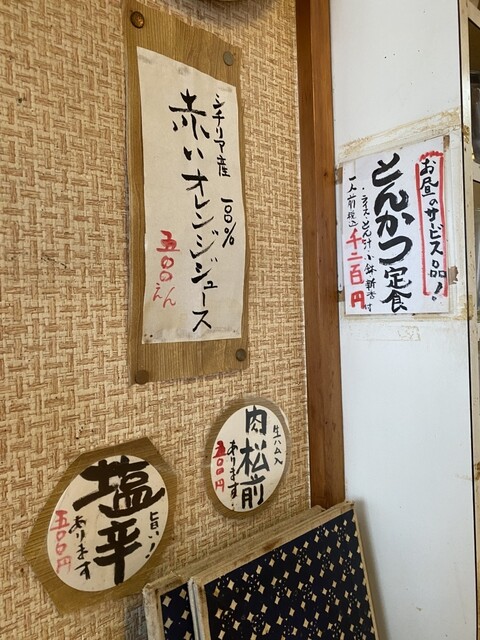 シチリア産 一〇〇%
赤いオレンジジュース
五〇〇えん
お昼のサービス品!
とんかつ定食
・ライス・とん汁・小鉢・新香付
一人前税込 千二百円
生ハム入
肉松前
あります!
五〇〇円
旨い!
塩辛
あります
五〇〇円